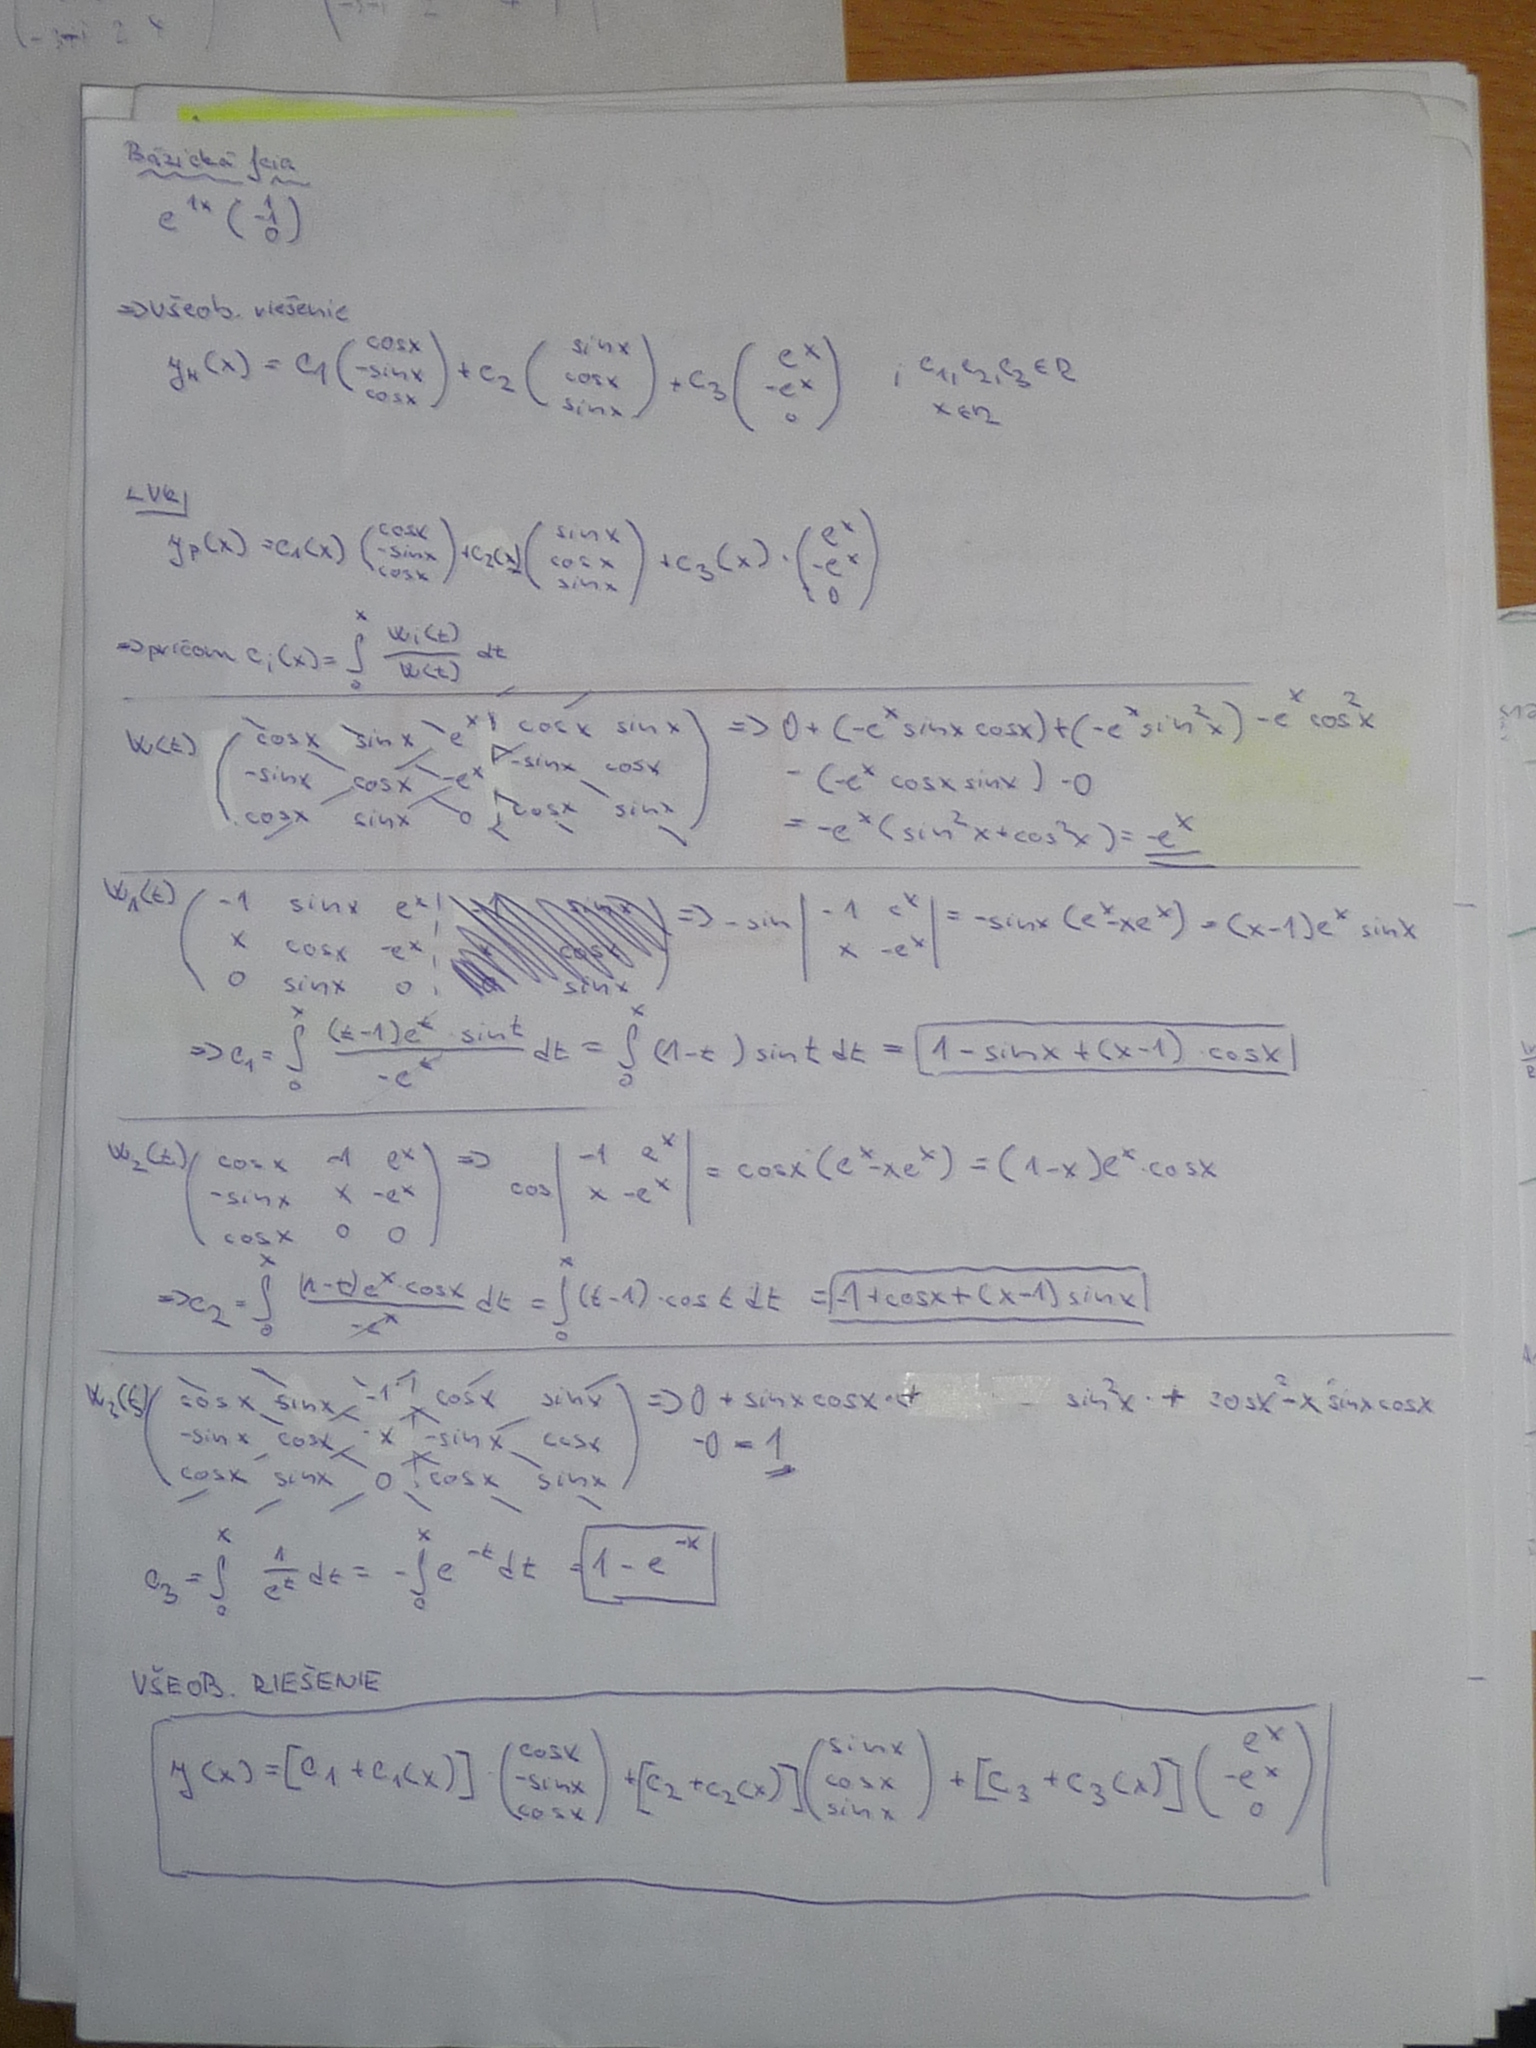 Bázická fcia
e^{1x} (1 -1 0)
=> všeob. riešenie
y_H(x) = C1 (cosx -sinx cosx) + C2 (sinx cosx sinx) + C3 (e^x -e^x 0) ; C1, C2, C3 ∈ R
x ∈ R
LVK
y_P(x) = c1(x) (cosx -sinx cosx) + c2(x) (sinx cosx sinx) + c3(x) · (e^x -e^x 0)
=> pričom c_i(x) = ∫_0^x W_i(t)/W(t) dt
W(t) (cosx sinx e^x | cosx sinx => 0 + (-e^x sinx cosx) + (-e^x sin^2 x) - e^x cos^2 x
-sinx cosx -e^x | -sinx cosx - (-e^x cosx sinx) - 0
cosx sinx 0 | cosx sinx) = -e^x (sin^2 x + cos^2 x) = -e^x
W1(t) (-1 sinx e^x => -sin |-1 e^x = -sinx (e^x - xe^x) = (x-1)e^x sinx
x cosx -e^x x -e^x|
0 sinx 0 sinx)
=> c1 = ∫_0^x (t-1)e^t · sint / -e^t dt = ∫_0^x (1-t) sint dt = 1 - sinx + (x-1) · cosx
W2(t) (cosx -1 e^x) => cos |-1 e^x = cosx (e^x - xe^x) = (1-x)e^x · cosx
-sinx x -e^x x -e^x|
cosx 0 0
=> c2 = ∫_0^x (1-t)e^x · cosx / -e^x dt = ∫_0^x (t-1) · cost dt = -1 + cosx + (x-1) sinx
(cosx sinx -1 cosx sinx) => 0 + sinx cosx · sin^2 x · + cosx^2 - x sinx cosx
-sinx cosx x -sinx cosx -0 = 1
cosx sinx 0 cosx sinx
c3 = ∫_0^x 1/e^t dt = -∫_0^x e^{-t} dt = 1 - e^{-x}
VŠEOB. RIEŠENIE
y(x) = [C1 + c1(x)] · (cosx -sinx cosx) + [C2 + c2(x)] (sinx cosx sinx) + [C3 + c3(x)] (e^x -e^x 0)